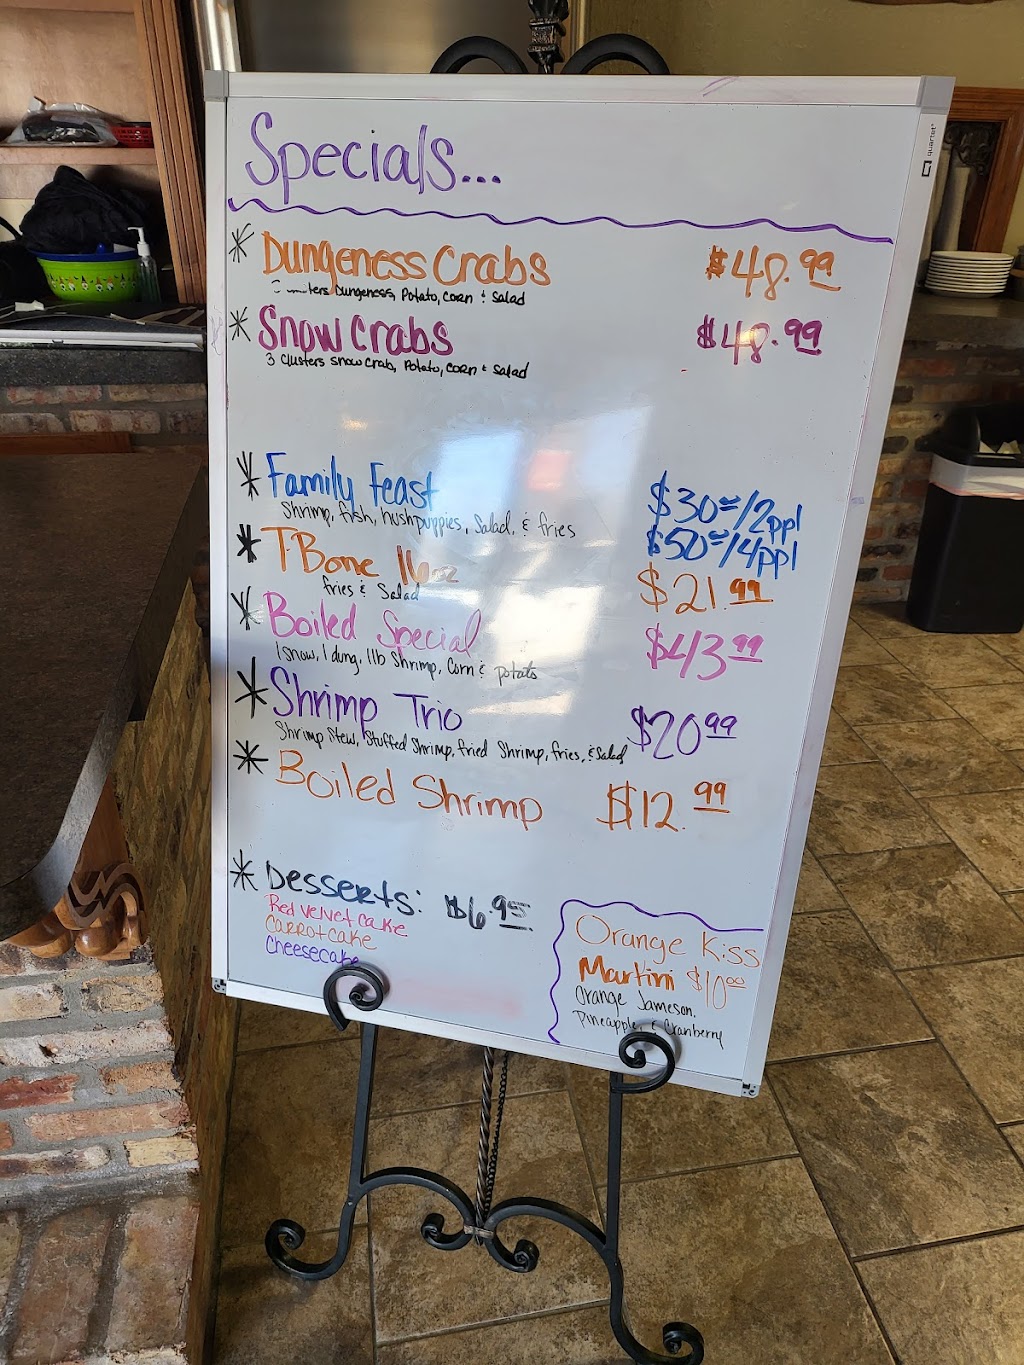 quartet
Specials...
* Dungeness Crabs $48.99
Dungeness, Potato, corn & Salad
* Snow Crabs $48.99
3 Clusters snow crab, Potato, corn & Salad
* Family Feast $30⁰⁰/2ppl
Shrimp, fish, hushpuppies, Salad, & fries $50⁰⁰/4ppl
* T-Bone 16oz $21.99
fries & Salad
* Boiled Special $43.99
1 snow, 1 dung, 1lb Shrimp, Corn & potato
* Shrimp Trio $20.99
Shrimp Stew, Stuffed Shrimp, fried Shrimp, fries, & Salad
* Boiled Shrimp $12.99
* Desserts: $6.95
Red Velvet Cake
Carrot cake
Cheesecake
Orange Kiss
Martini $10⁰⁰
Orange Jameson.
Pineapple, & Cranberry